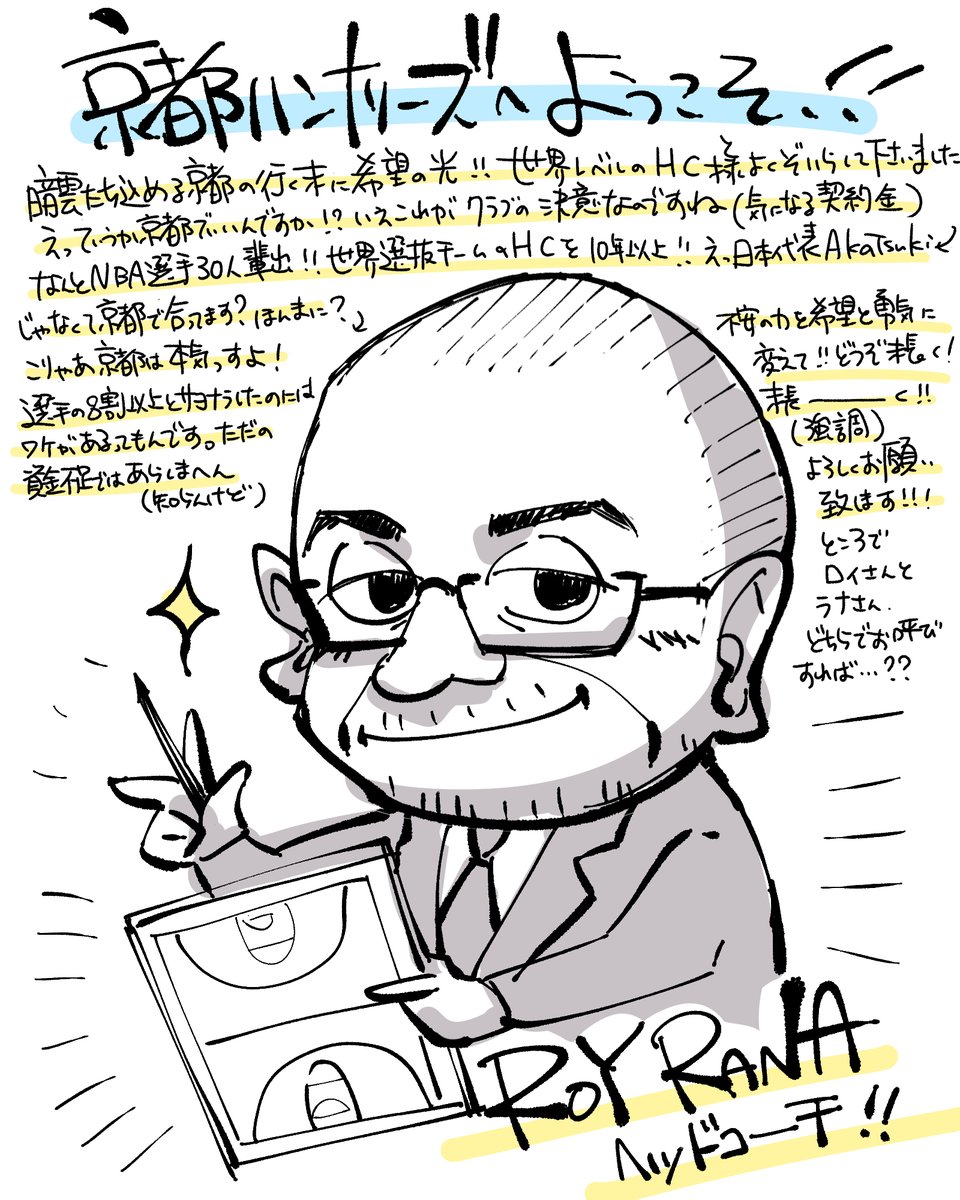 京都ハンナリーズへようこそ‥!!
暗雲たち込める京都の行く末に希望の光!! 世界レベルのHC様よくぞいらして下さいました
えっていうか京都でいいんですか!? いえこれがクラブの決意なのですねぇ(気になる契約金)
なんとNBA選手30人輩出!! 世界選抜チームのHCを10年以上!! えっ日本代表AkaTsuki
じゃなくて京都で合ってます? ほんまに?
こりゃあ京都は本気っすよ!
選手の8割以上とサヨナラしたのには
ワケがあるってもんです。ただの
資金不足ではあらしまへん
(知らんけど)
桜の力を希望と勇気に
変えて!! どうぞ末長く!
末長――く!!
(強調)
よろしくお願い
致します!!!
ところで
ロイさんと
ラナさん、
どちらでお呼び
すれば…??
ROY RANA
ヘッドコーチ!!